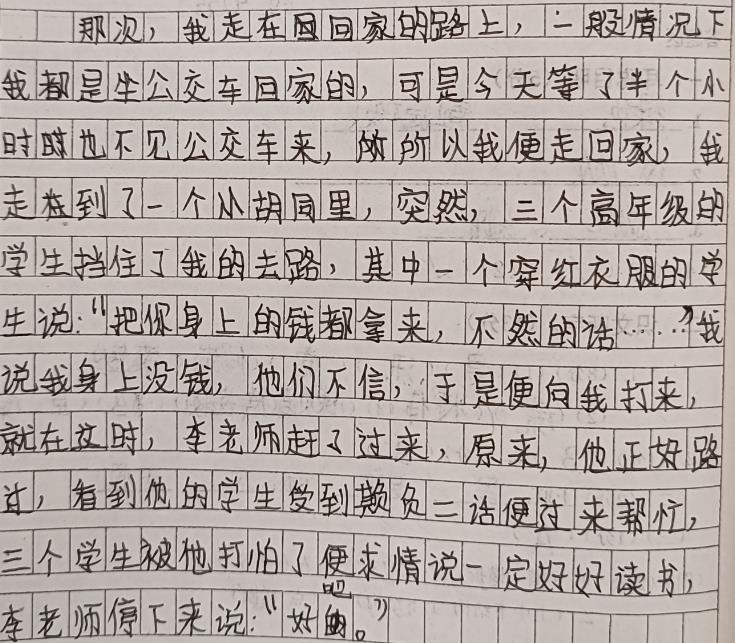 那次，我走在回家的路上，一般情况下
我都是坐公交车回家的，可是今天等了半个小
时时也不见公交车来，所以我便走回家，我
走到了一个小胡同里，突然，三个高年级的
学生挡住了我的去路，其中一个穿红衣服的学
生说：“把你身上的钱都拿来，不然的话……”我
说我身上没钱，他们不信，于是便向我打来，
就在这时，李老师赶了过来，原来，他正好路
过，看到他的学生受到欺负二话便过来帮忙，
三个学生被他打怕了便求情说一定好好读书，
李老师停下来说：“好吧。”